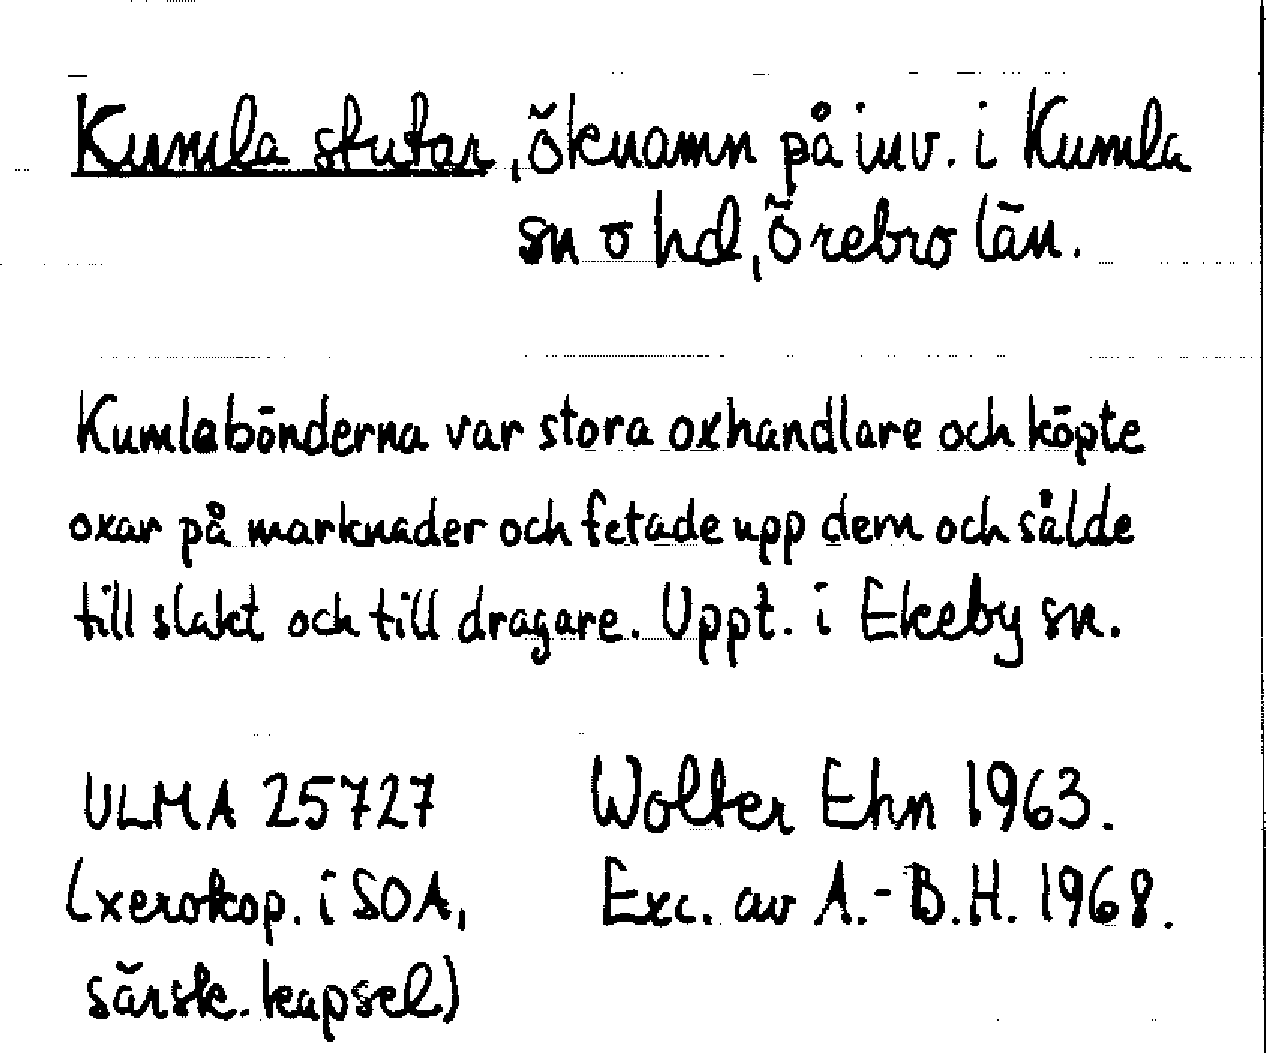 Kumla stutar, öknamn på inv. i Kumla
sn o hd, Örebro län.
Kumlabönderna var stora oxhandlare och köpte
oxar på marknader och fetade upp dem och sålde
till slakt och till dragare. Uppt. i Ekeby sn.
ULMA 25727 Wolter Ehn 1963.
(xerokop. i SOA, Exc. av A.-B.H. 1968.
särsk. kapsel)